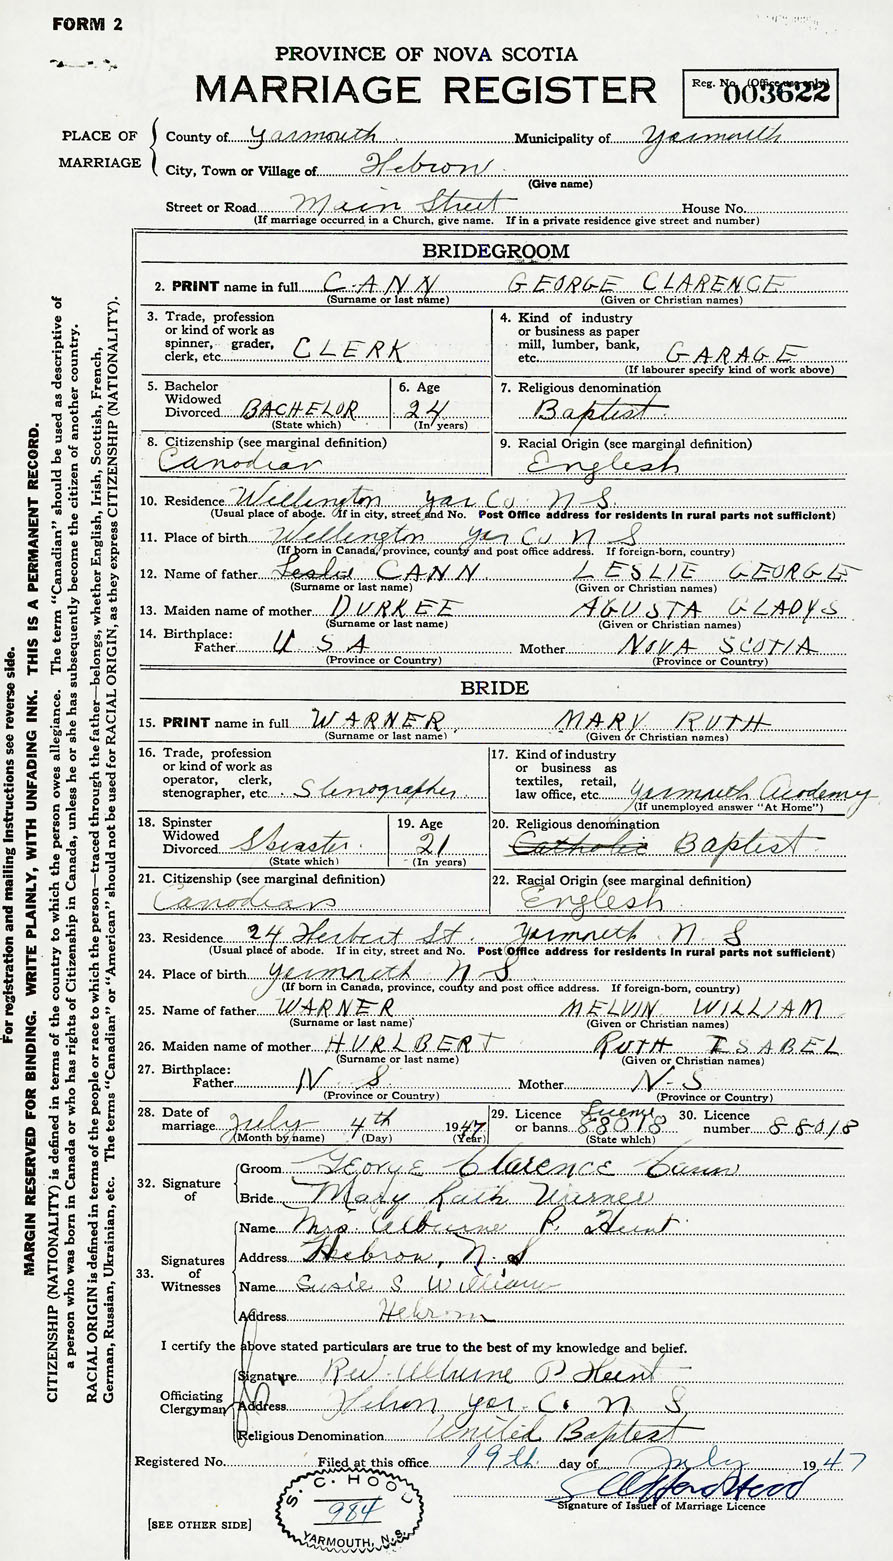 FORM 2
PROVINCE OF NOVA SCOTIA
MARRIAGE REGISTER
Reg. No. (Office use only)
003622
PLACE OF MARRIAGE
County of Yarmouth Municipality of Yarmouth
City, Town or Village of Hebron
(Give name)
Street or Road Main Street House No.
(If marriage occurred in a Church, give name. If in a private residence give street and number)
BRIDEGROOM
2. PRINT name in full CANN GEORGE CLARENCE
(Surname or last name) (Given or Christian names)
3. Trade, profession
or kind of work as
spinner, grader,
clerk, etc. CLERK
4. Kind of industry
or business as paper
mill, lumber, bank,
etc. GARAGE
(If labourer specify kind of work above)
5. Bachelor
Widowed
Divorced BACHELOR
(State which)
6. Age
24
(In years)
7. Religious denomination
Baptist
8. Citizenship (see marginal definition)
Canadian
9. Racial Origin (see marginal definition)
English
10. Residence Wellington Yar Co N S
(Usual place of abode. If in city, street and No. Post Office address for residents in rural parts not sufficient)
11. Place of birth Wellington Yar Co N S
(If born in Canada, province, county and post office address. If foreign-born, country)
12. Name of father Leslie CANN LESLIE GEORGE
(Surname or last name) (Given or Christian names)
13. Maiden name of mother DURKEE AGUSTA GLADYS
(Surname or last name) (Given or Christian names)
14. Birthplace:
Father U S A Mother NOVA SCOTIA
(Province or Country) (Province or Country)
BRIDE
15. PRINT name in full WARNER MARY RUTH
(Surname or last name) (Given or Christian names)
16. Trade, profession
or kind of work as
operator, clerk,
stenographer, etc. Stenographer
17. Kind of industry
or business as
textiles, retail,
law office, etc. Yarmouth Academy
(If unemployed answer "At Home")
18. Spinster
Widowed
Divorced Spinster
(State which)
19. Age
21
(In years)
20. Religious denomination
Catholic Baptist
21. Citizenship (see marginal definition)
Canadian
22. Racial Origin (see marginal definition)
English
23. Residence 24 Herbert St. Yarmouth N. S
(Usual place of abode. If in city, street and No. Post Office address for residents in rural parts not sufficient)
24. Place of birth Yarmouth N S
(If born in Canada, province, county and post office address. If foreign-born, country)
25. Name of father WARNER MELVIN WILLIAM
(Surname or last name) (Given or Christian names)
26. Maiden name of mother HURLBERT RUTH ISABEL
(Surname or last name) (Given or Christian names)
27. Birthplace:
Father N S Mother N-S
(Province or Country) (Province or Country)
28. Date of
marriage July 4th 1947
(Month by name) (Day) (Year)
29. Licence
or banns License 88018
(State which)
30. Licence
number 88018
32. Signature of
Groom George Clarence Cann
Bride Mary Ruth Warner
33. Signatures of Witnesses
Name Mrs. Alburne P. Hunt
Address Hebron, N. S
Name Susie S Williams
Address Hebron
I certify the above stated particulars are true to the best of my knowledge and belief.
Officiating Clergyman
Signature Rev. Alburne P Hunt
Address Hebron Yar. Co. N S
Religious Denomination United Baptist
Registered No. Filed at this office 19th day of July 1947
Signature of Issuer of Marriage Licence
S. C. HOOD
984
YARMOUTH, N. S.
[SEE OTHER SIDE]
For registration and mailing instructions see reverse side.
MARGIN RESERVED FOR BINDING. WRITE PLAINLY, WITH UNFADING INK. THIS IS A PERMANENT RECORD.
CITIZENSHIP (NATIONALITY) is defined in terms of the country to which the person owes allegiance. The term "Canadian" should be used as descriptive of
a person who was born in Canada or who has rights of Citizenship in Canada, unless he or she has subsequently become the citizen of another country.
RACIAL ORIGIN is defined in terms of the people or race to which the person—traced through the father—belongs, whether English, Irish, Scottish, French,
German, Russian, Ukrainian, etc. The terms "Canadian" or "American" should not be used for RACIAL ORIGIN, as they express CITIZENSHIP (NATIONALITY).